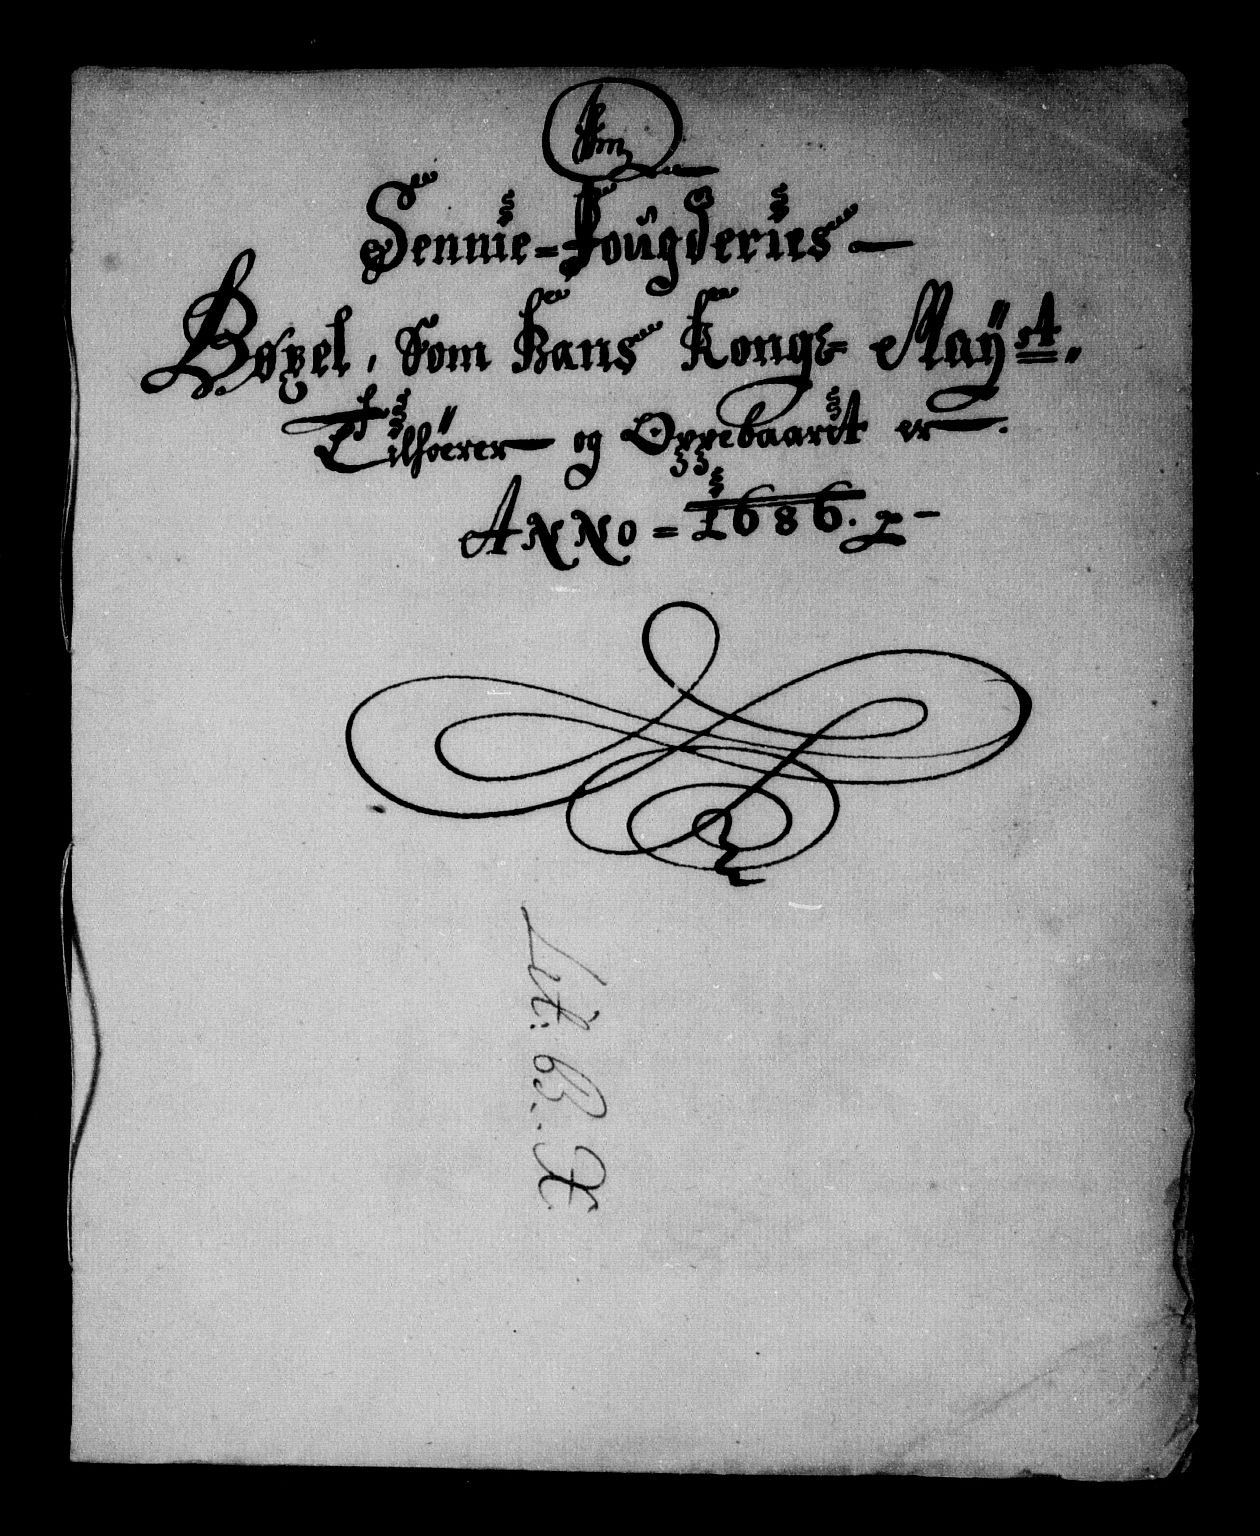 Sennie-Fougderies
Bøxel, som Hans Kong: May:tt.
Tilhøerer og Oppebaarit er.
Anno = 1686.
Lit: B. X.